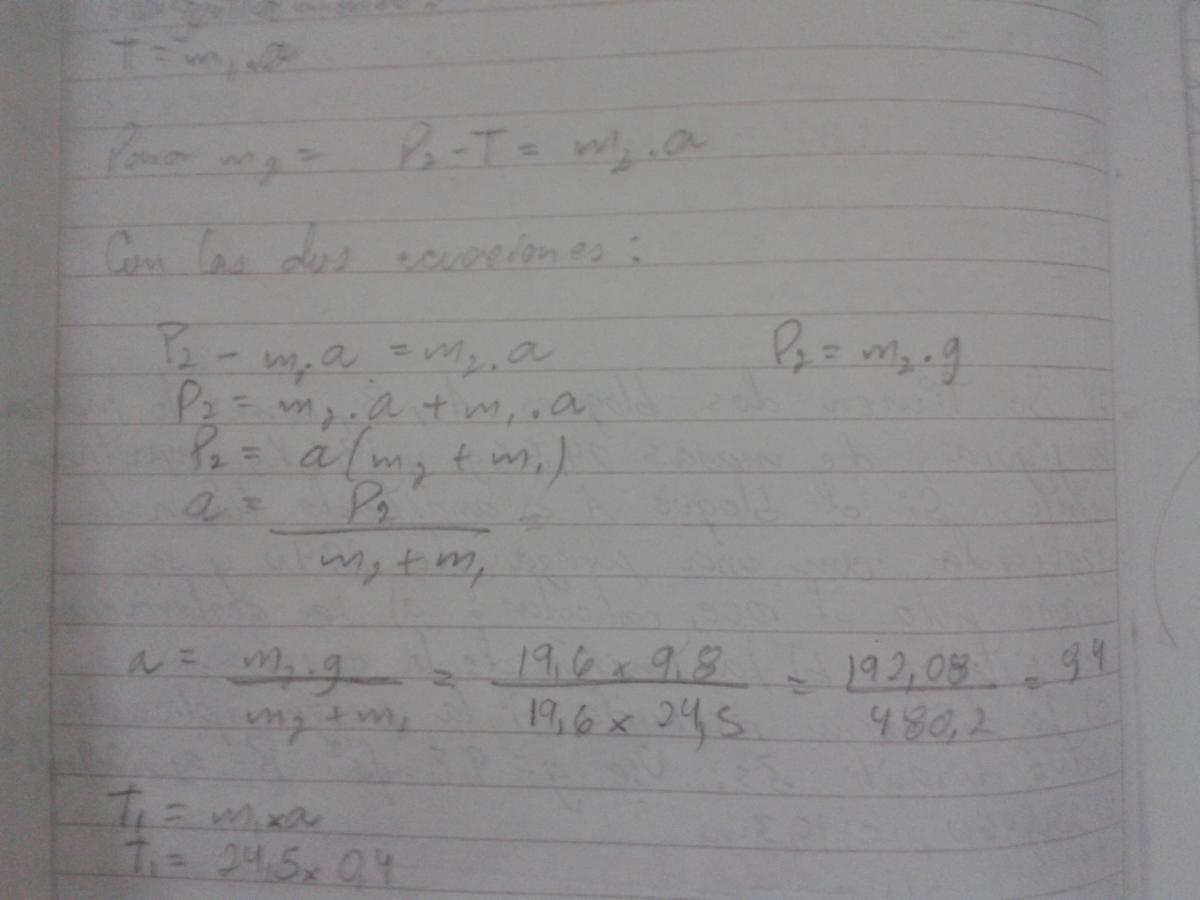 T = m₁.a
Para m₂ = P₂ - T = m₂.a
Con las dos ecuaciones:
P₂ - m₁.a = m₂.a P₂ = m₂.g
P₂ = m₂.a + m₁.a
P₂ = a(m₂ + m₁)
a = P₂ / m₂ + m₁ =
a = m₂.g / m₂ + m₁ = 19,6 x 9,8 / 19,6 x 24,5 = 192,08 / 480,2 = 0,4
T₁ = m₁xa
T₁ = 24,5x 0,4